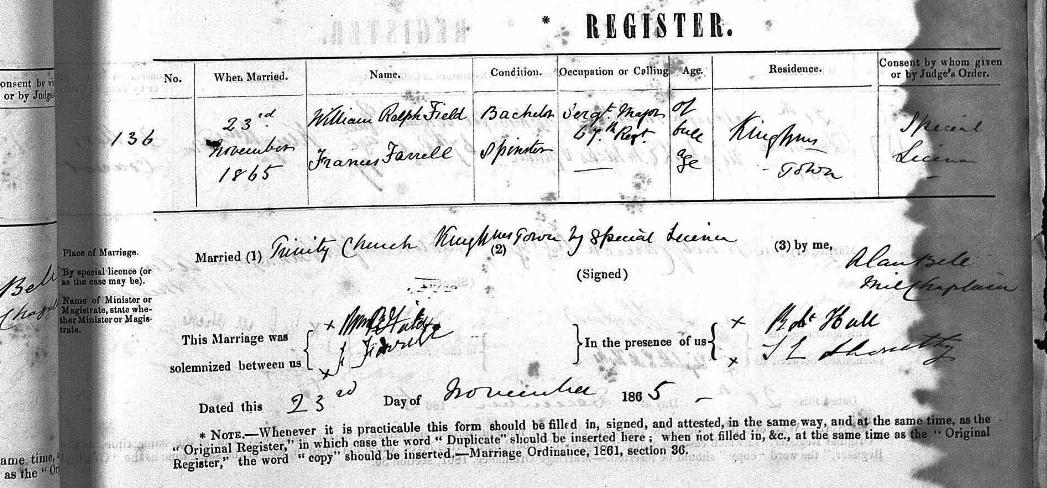 * REGISTER.
onsent by
or by Judg
No.
When Married.
Name.
Condition.
Occupation or Calling
Age.
Residence.
Consent by whom given
or by Judge's Order.
136
23rd
November
1865
William Ralph Field
Frances Farrell
Bachelor
Spinster
Sergt. Major
67th Regt.
of
full
age
King Wms
Town
Special
Licence
Place of Marriage.
By special licence (or
as the case may be).
Name of Minister or
Magistrate, state whe-
ther Minister or Magis-
trate.
Bell
Married (1) Trinity Church King Wms Town by Special Licence (3) by me,
(2)
(Signed)
Alan Bell
Mil Chaplain
This Marriage was
solemnized between us
x
x F Farrell
In the presence of us
x Robt Hall
x
Dated this 23rd Day of November 1865
* NOTE.—Whenever it is practicable this form should be filled in, signed, and attested, in the same way, and at the same time, as the
"Original Register," in which case the word "Duplicate" should be inserted here; when not filled in, &c., at the same time as the "Original
Register," the word "copy" should be inserted.—Marriage Ordinance, 1861, section 36.
ame time,
as the "Or